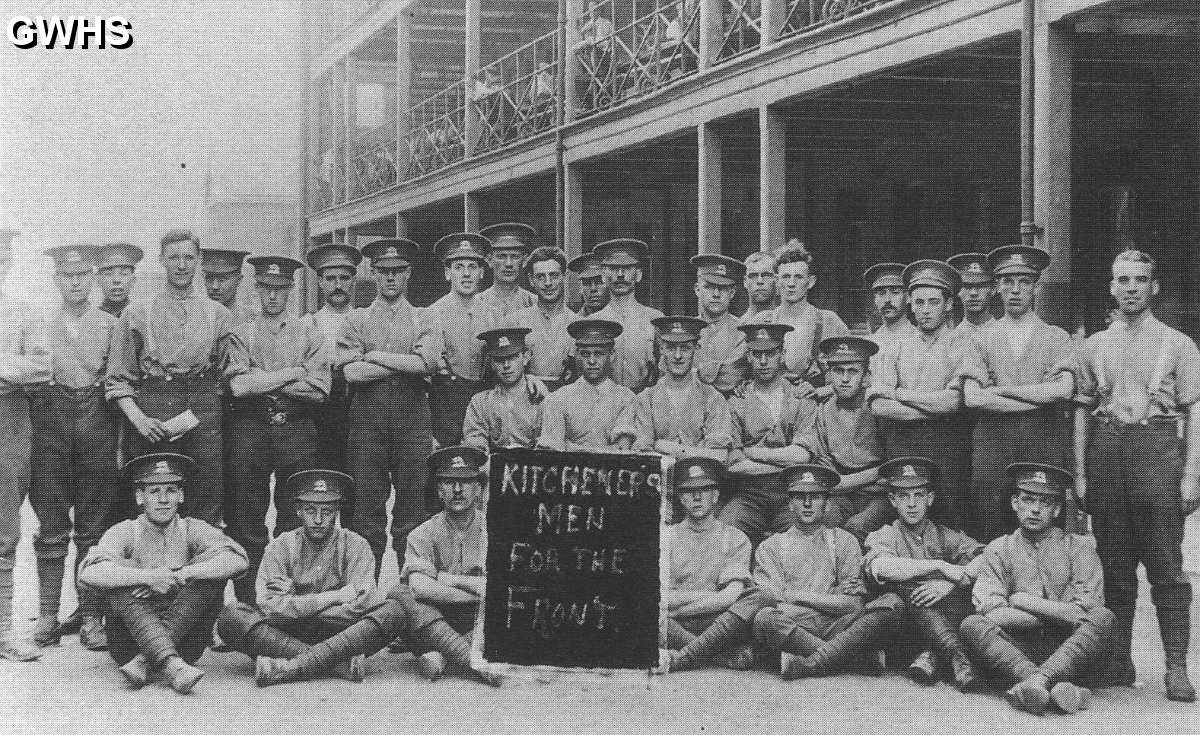 GWHS
KITCHENER'S
MEN
FOR THE
FRONT.